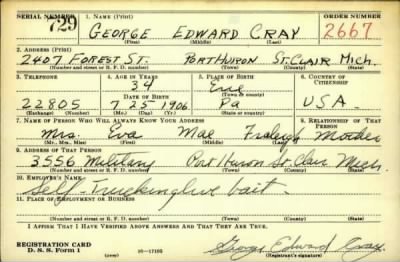 SERIAL NUMBER 1. NAME (Print) ORDER NUMBER
729 GEORGE EDWARD CRAY 2667
(First) (Middle) (Last)
2. ADDRESS (Print)
2407 FOREST ST. PORT HURON ST. CLAIR MICH.
(Number and street or R. F. D. number) (Town) (County) (State)
3. TELEPHONE 4. AGE IN YEARS 5. PLACE OF BIRTH 6. COUNTRY OF CITIZENSHIP
34 Erie
DATE OF BIRTH (Town or county)
22805 7 25 1906 Pa U.S.A.
(Mo.) (Day) (Yr.) (State or country)
7. NAME OF PERSON WHO WILL ALWAYS KNOW YOUR ADDRESS 8. RELATIONSHIP OF THAT PERSON
Mrs. Eva Mae Fraleigh Mother
(Mr., Mrs., Miss) (First) (Middle) (Last)
9. ADDRESS OF THAT PERSON
3556 Military Port Huron St. Clair Mich.
(Number and street or R. F. D. number) (Town) (County) (State)
10. EMPLOYER'S NAME
Self- Trucking live bait.
11. PLACE OF EMPLOYMENT OR BUSINESS
(Number and street or R. F. D. number) (Town) (County) (State)
I AFFIRM THAT I HAVE VERIFIED ABOVE ANSWERS AND THAT THEY ARE TRUE.
REGISTRATION CARD
D. S. S. Form 1 16—17105 George Edward Cray
(Registrant's signature)